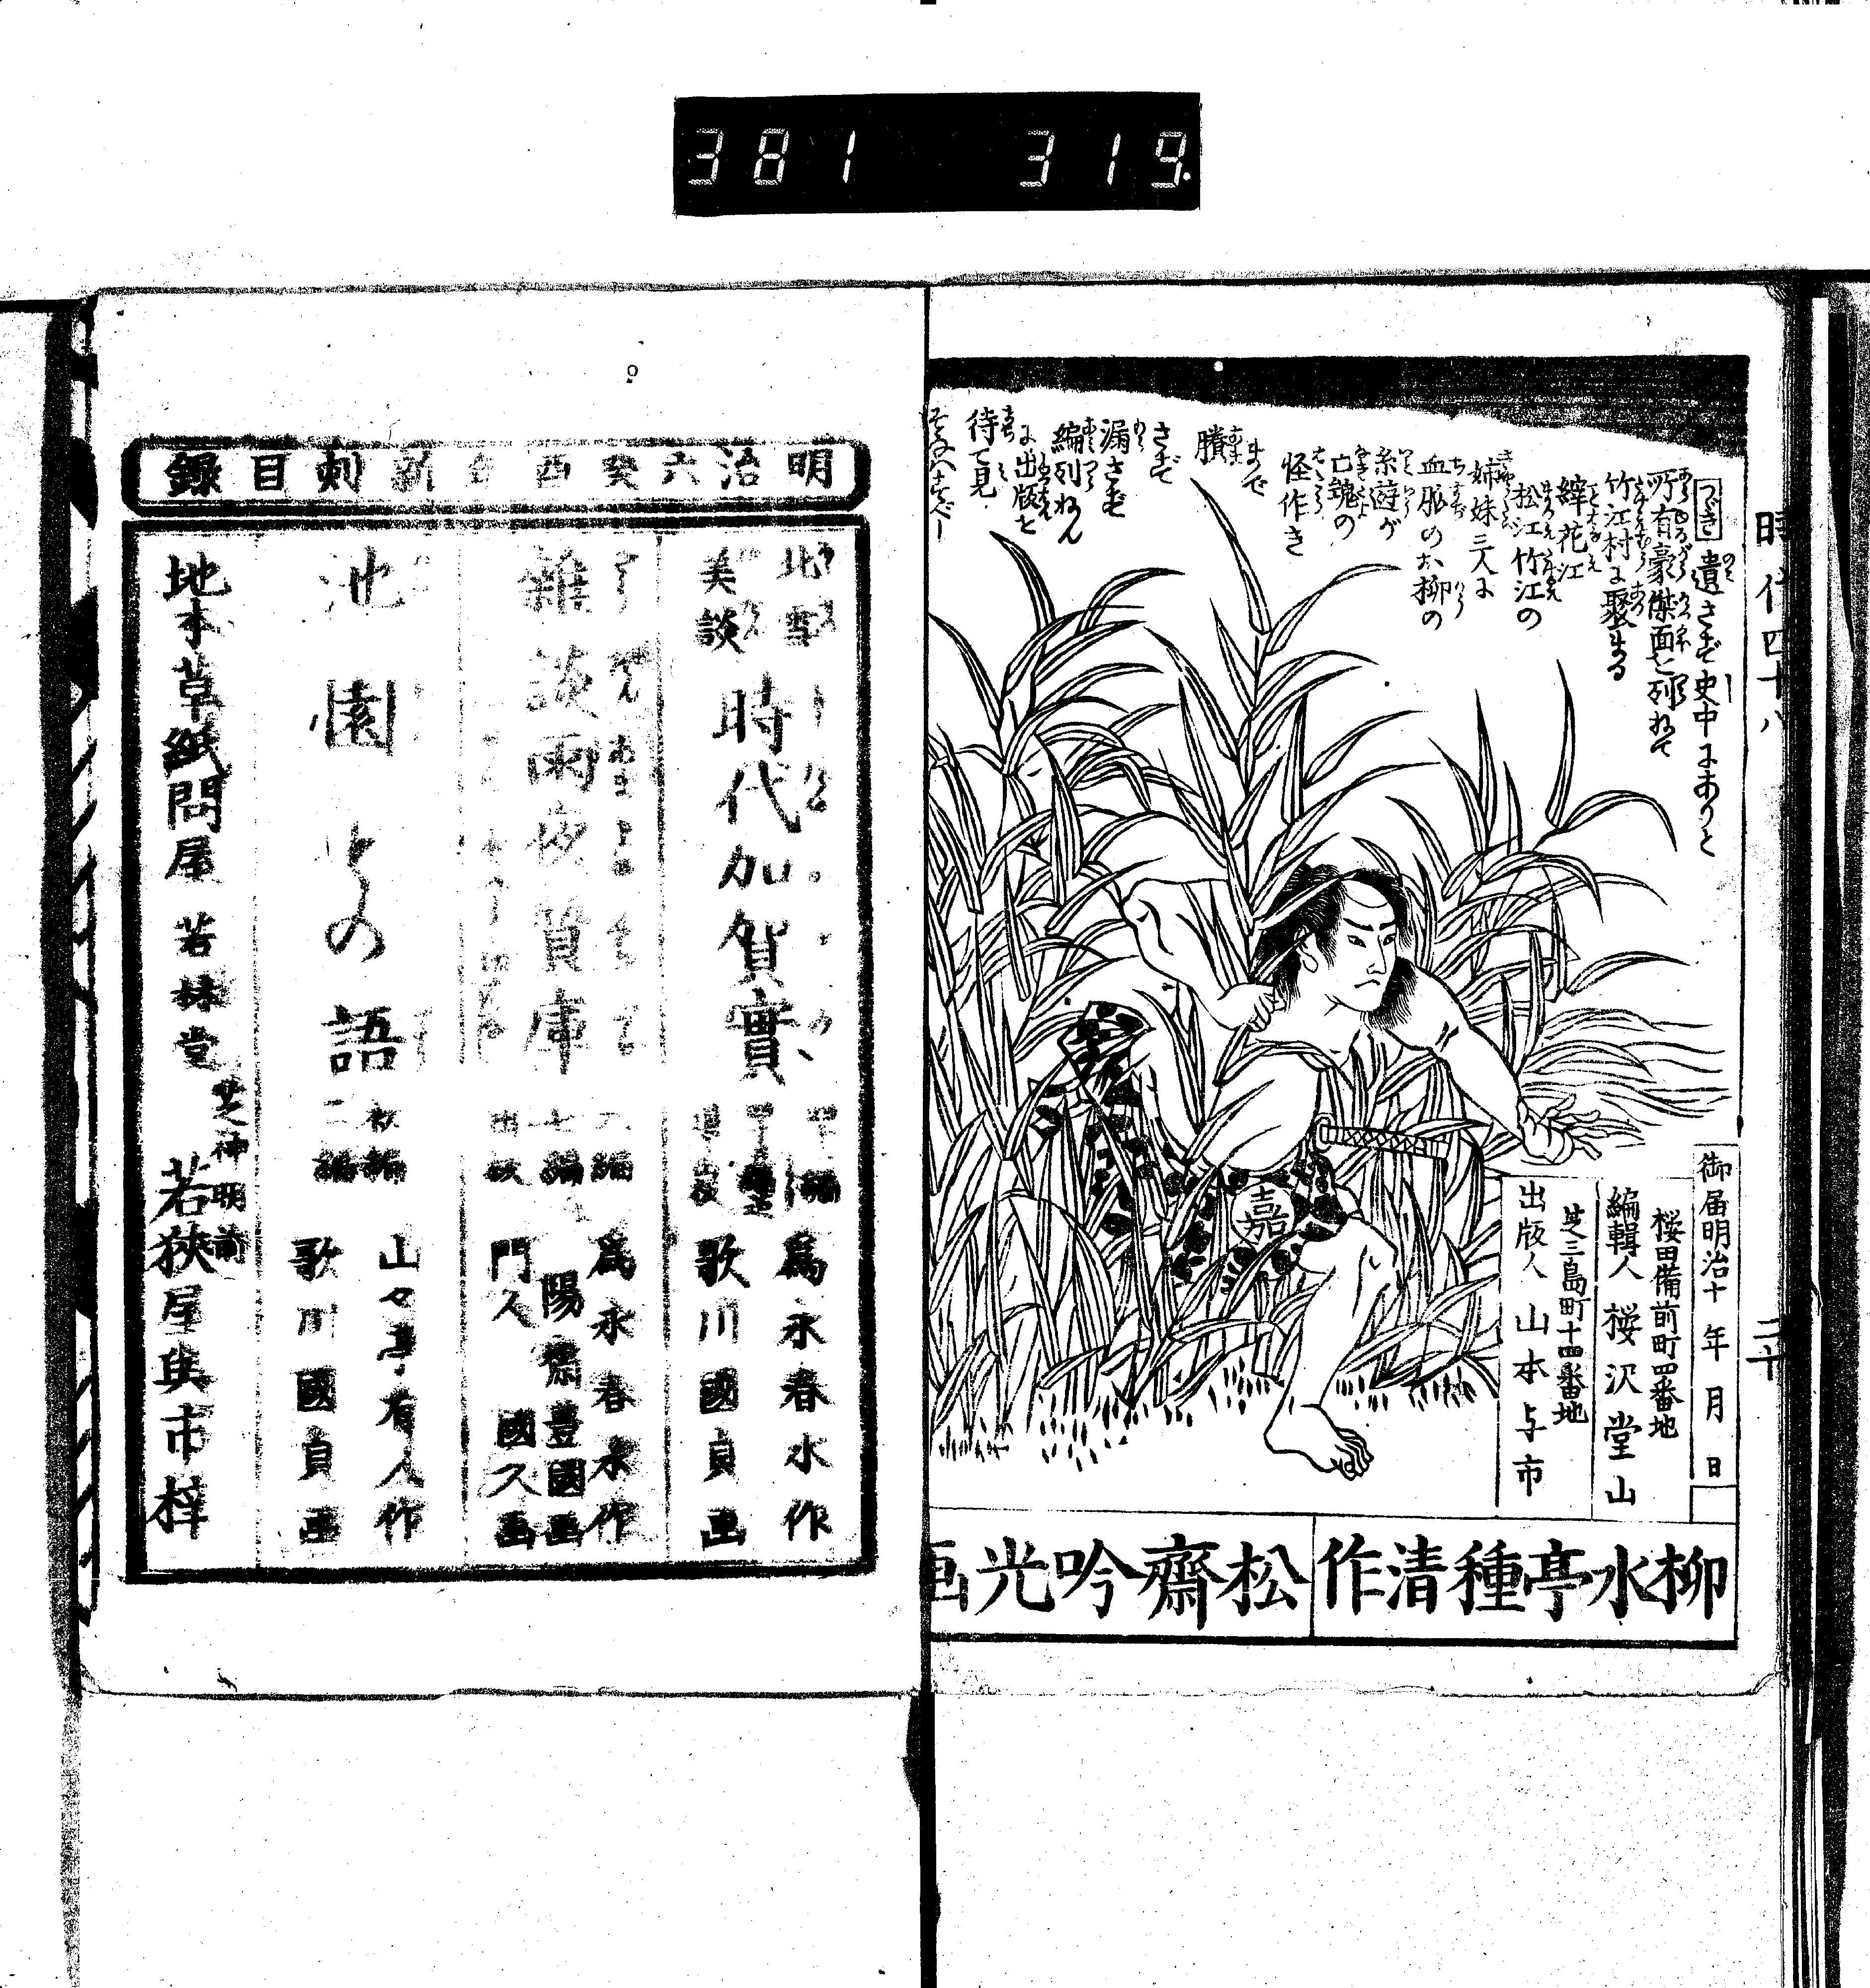 381 319.
時代四十八
二十
つゞき 遺さず史中にありと
所有豪傑面を列ねて
竹江村に聚まる
縡花江
松江竹江の
姉妹三人に
血脈のお柳の
糸遊が
亡魂の
怪作き
まで
贖
さず
漏さず
編列ねん
に出版を
待て見
御届明治十年月日
桜田備前町四番地
編輯人 桜沢堂山
芝三島町十四番地
出版人 山本与市
柳水亭種清作
松齋吟光画
明治六癸酉年新刻目録
北雪美談 時代加賀實
爲永春水作
歌川國貞画
雜談雨夜質庫
爲永春水作
陽齋豊國画
門人 國久画
池園の語
初編
二編
山々亭有人作
歌川國貞画
地本草紙問屋 若林堂
芝神明前
若狹屋與市梓